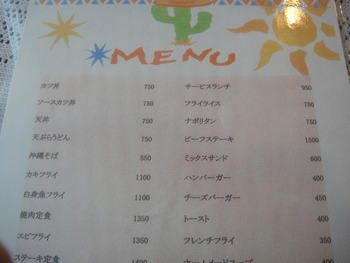 MENU
カツ丼 750
ソースカツ丼 750
天丼 750
天ぷらうどん 750
沖縄そば 550
カキフライ 1100
白身魚フライ 1100
焼肉定食 1350
エビフライ 1350
ステーキ定食 1400
サービスランチ 950
フライライス 750
ナポリタン 750
ビーフステーキ 1500
ミックスサンド 600
ハンバーガー 400
チーズバーガー 450
トースト 400
フレンチフライ 350